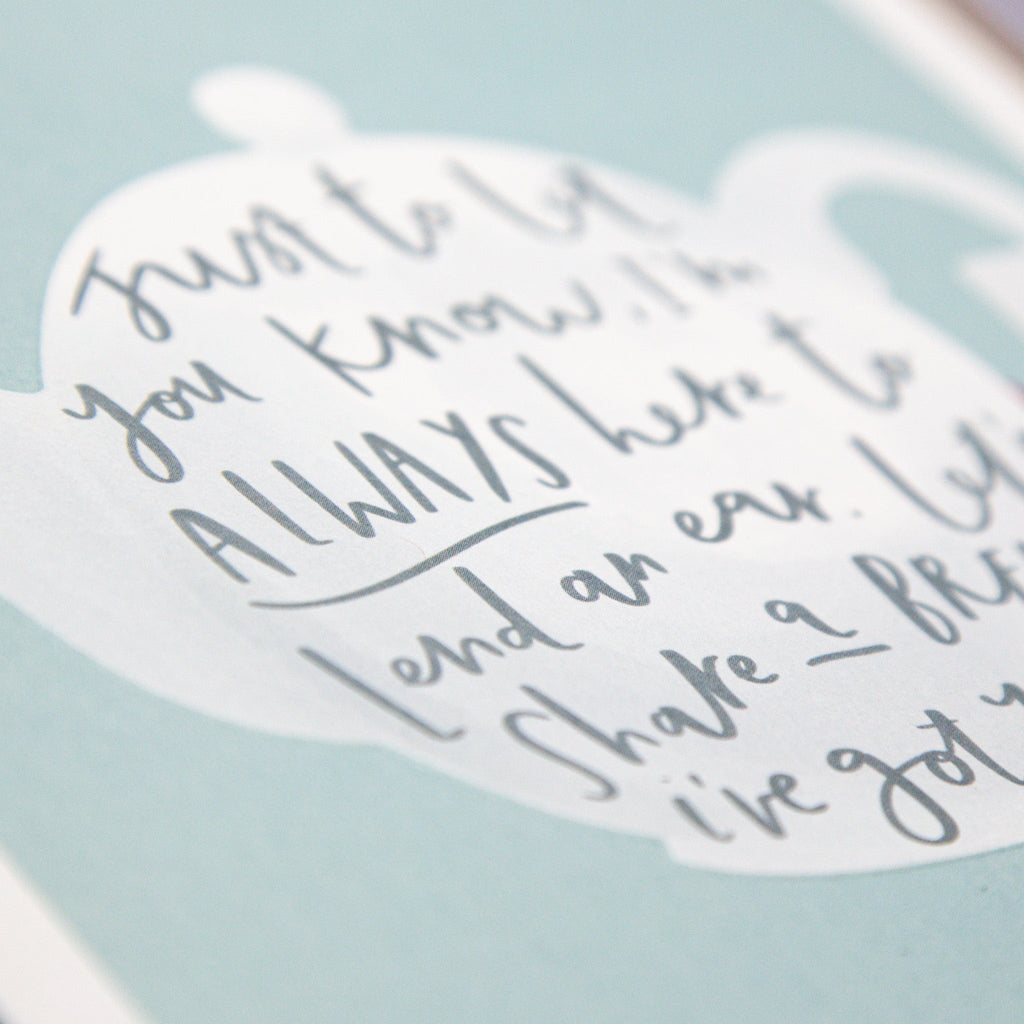 Just to let
you know, I'm
ALWAYS here to
lend an ear. Let's
Share a
i've got